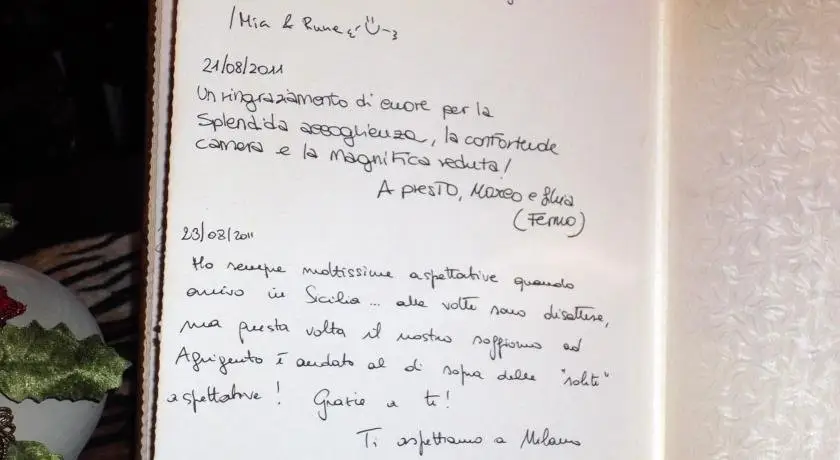 /Mia & Rune
21/08/2011
Un ringraziamento di cuore per la
Splendida accoglienza, la confortevole
camera e la magnifica veduta!
A presto, Marco e
(Fermo)
23/08/2011
Ho sempre moltissime aspettative quando
arrivo in Sicilia... alle volte sono disattese,
ma questa volta il nostro soggiorno ad
Agrigento è andato al di sopra delle "solite"
aspettative! Grazie a te!
Ti aspettiamo a Milano